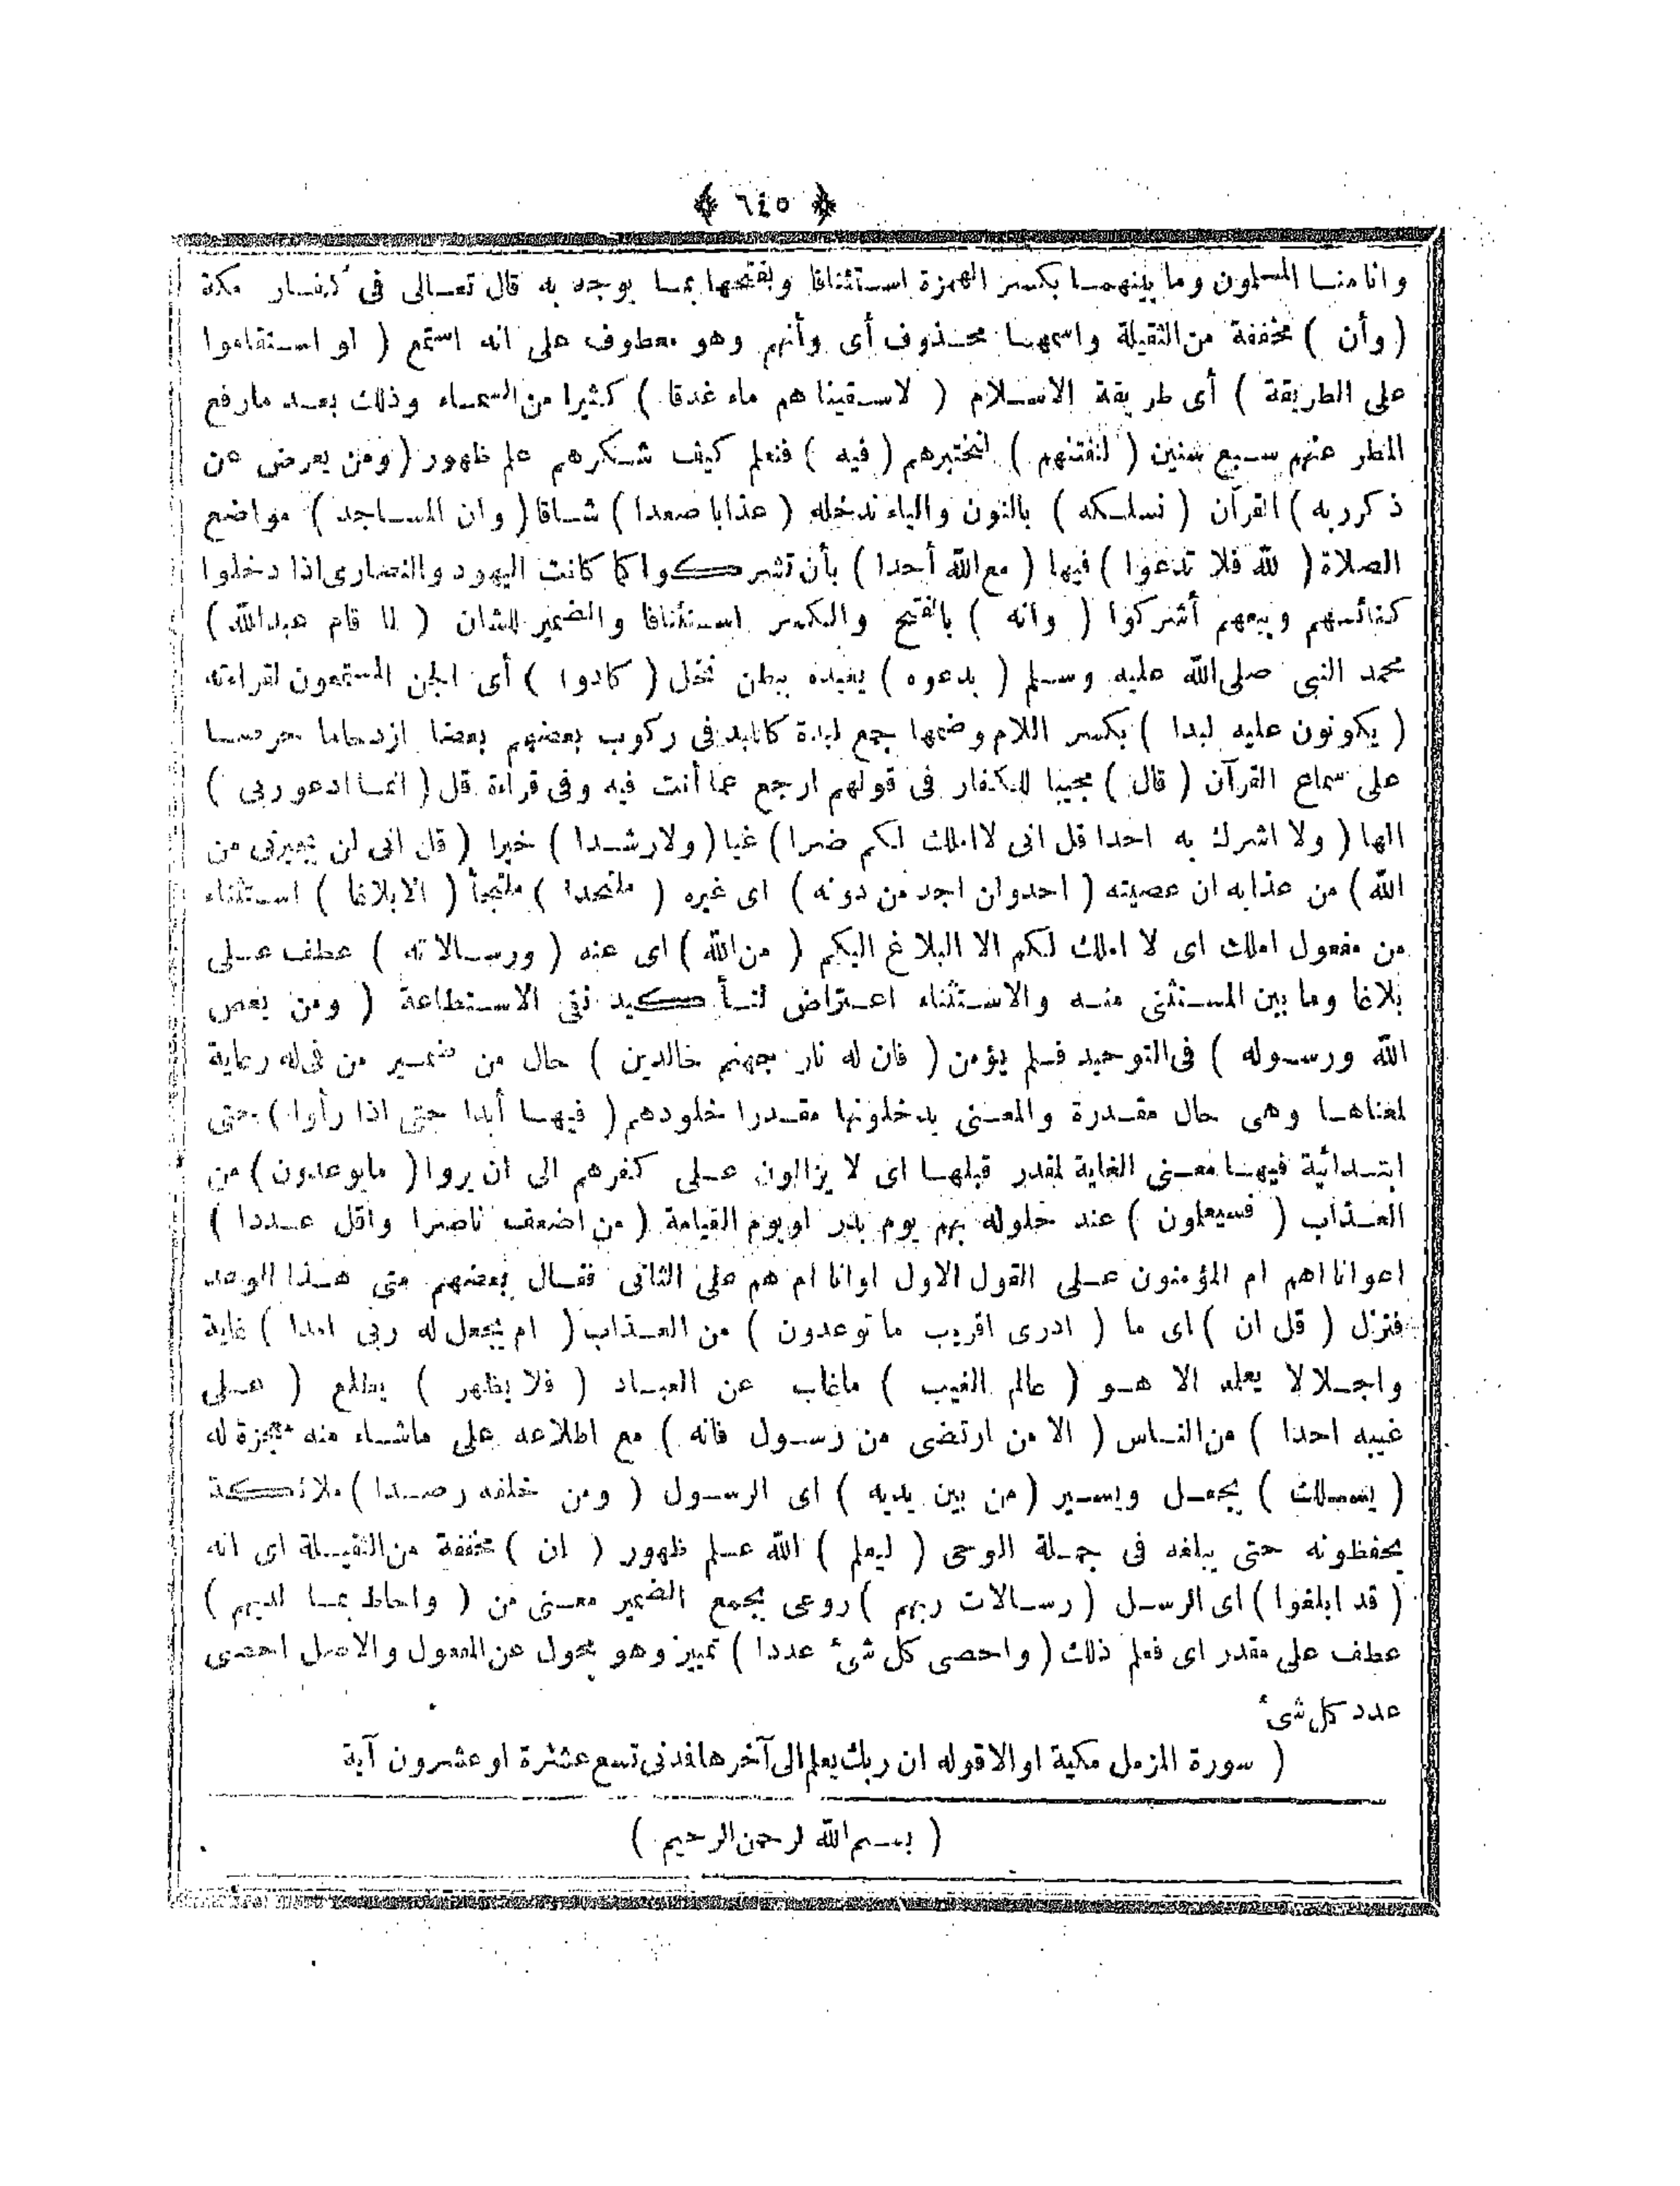 ﴿ ٦٤٥ ﴾
وانا منا المسلمون وما بينهما بكسر الهمزة استئنافا وبفتحها بما يوجه به قال تعالى فى كفار مكة
( وأن ) مخففة من الثقيلة واسمها محذوف أى وأنهم وهو معطوف على انه استمع ( لو استقاموا
على الطريقة ) أى طريقة الاسلام ( لاسقيناهم ماء غدقا ) كثيرا من السماء وذلك بعد مارفع
المطر عنهم سبع سنين ( لنفتنهم ) لنختبرهم ( فيه ) فنعلم كيف شكرهم علم ظهور ( ومن يعرض عن
ذكر ربه ) القرآن ( نسلكه ) بالنون والياء ندخله ( عذابا صعدا ) شاقا ( وان المساجد ) مواضع
الصلاة ( لله فلا تدعوا ) فيها ( مع الله أحدا ) بأن تشركوا كما كانت اليهود والنصارى اذا دخلوا
كنائسهم وبيعهم أشركوا ( وانه ) بالفتح والكسر استئنافا والضمير للشان ( لما قام عبدالله )
محمد النبى صلى الله عليه وسلم ( يدعوه ) يعبده ببطن نخل ( كادوا ) أى الجن المستمعون لقراءته
( يكونون عليه لبدا ) بكسر اللام وضمها جمع لبدة كاللبد فى ركوب بعضهم بعضا ازدحاما حرصا
على سماع القرآن ( قال ) مجيبا للكفار فى قولهم ارجع عما أنت فيه وفى قراءة قل ( انما ادعو ربى )
الها ( ولا اشرك به احدا قل انى لا املك لكم ضرا ) غيا ( ولارشدا ) خيرا ( قل انى لن يجيرنى من
الله ) من عذابه ان عصيته ( احدوان اجد من دونه ) اى غيره ( ملتحدا ) ملتجأ ( الابلاغا ) استثناء
من مفعول املك اى لا املك لكم الا البلاغ اليكم ( من الله ) اى عنه ( ورسالاته ) عطف على
بلاغا وما بين المستثنى منه والاستثناء اعتراض لتأكيد نفى الاستطاعة ( ومن يعص
الله ورسوله ) فى التوحيد فلم يؤمن ( فان له نار جهنم خالدين ) حال من ضمير من فى له رعاية
لمعناها وهى حال مقدرة والمعنى يدخلونها مقدرا خلودهم ( فيها أبدا حتى اذا رأوا ) حتى
ابتدائية فيها معنى الغاية لمقدر قبلها اى لا يزالون على كفرهم الى ان يروا ( مايوعدون ) من
العذاب ( فسيعلمون ) عند حلوله بهم يوم بدر او يوم القيامة ( من اضعف ناصرا واقل عددا )
اعوانا اهم ام المؤمنون على القول الاول او انا ام هم على الثانى فقال بعضهم متى هذا الوعد
فنزل ( قل ان ) اى ما ( ادرى اقريب ما توعدون ) من العذاب ( ام يجعل له ربى امدا ) غاية
واجلا لا يعلمه الا هو ( عالم الغيب ) ماغاب عن العباد ( فلا يظهر ) يطلع ( على
غيبه احدا ) من الناس ( الا من ارتضى من رسول فانه ) مع اطلاعه على ماشاء منه معجزة له
( يسلك ) يجعل ويسير ( من بين يديه ) اى الرسول ( ومن خلفه رصدا ) ملائكة
يحفظونه حتى يبلغه فى جملة الوحى ( ليعلم ) الله علم ظهور ( ان ) مخففة من الثقيلة اى انه
( قد ابلغوا ) اى الرسل ( رسالات ربهم ) روعى بجمع الضمير معنى من ( واحاط بما لديهم )
عطف على مقدر اى فعلم ذلك ( واحصى كل شئ عددا ) تمييز وهو محول عن المفعول والاصل احصى
عدد كل شئ
( سورة المزمل مكية او الا قوله ان ربك يعلم الى آخرها فدنى تسع عشرة او عشرون آية
( بسم الله لرحمن الرحيم )